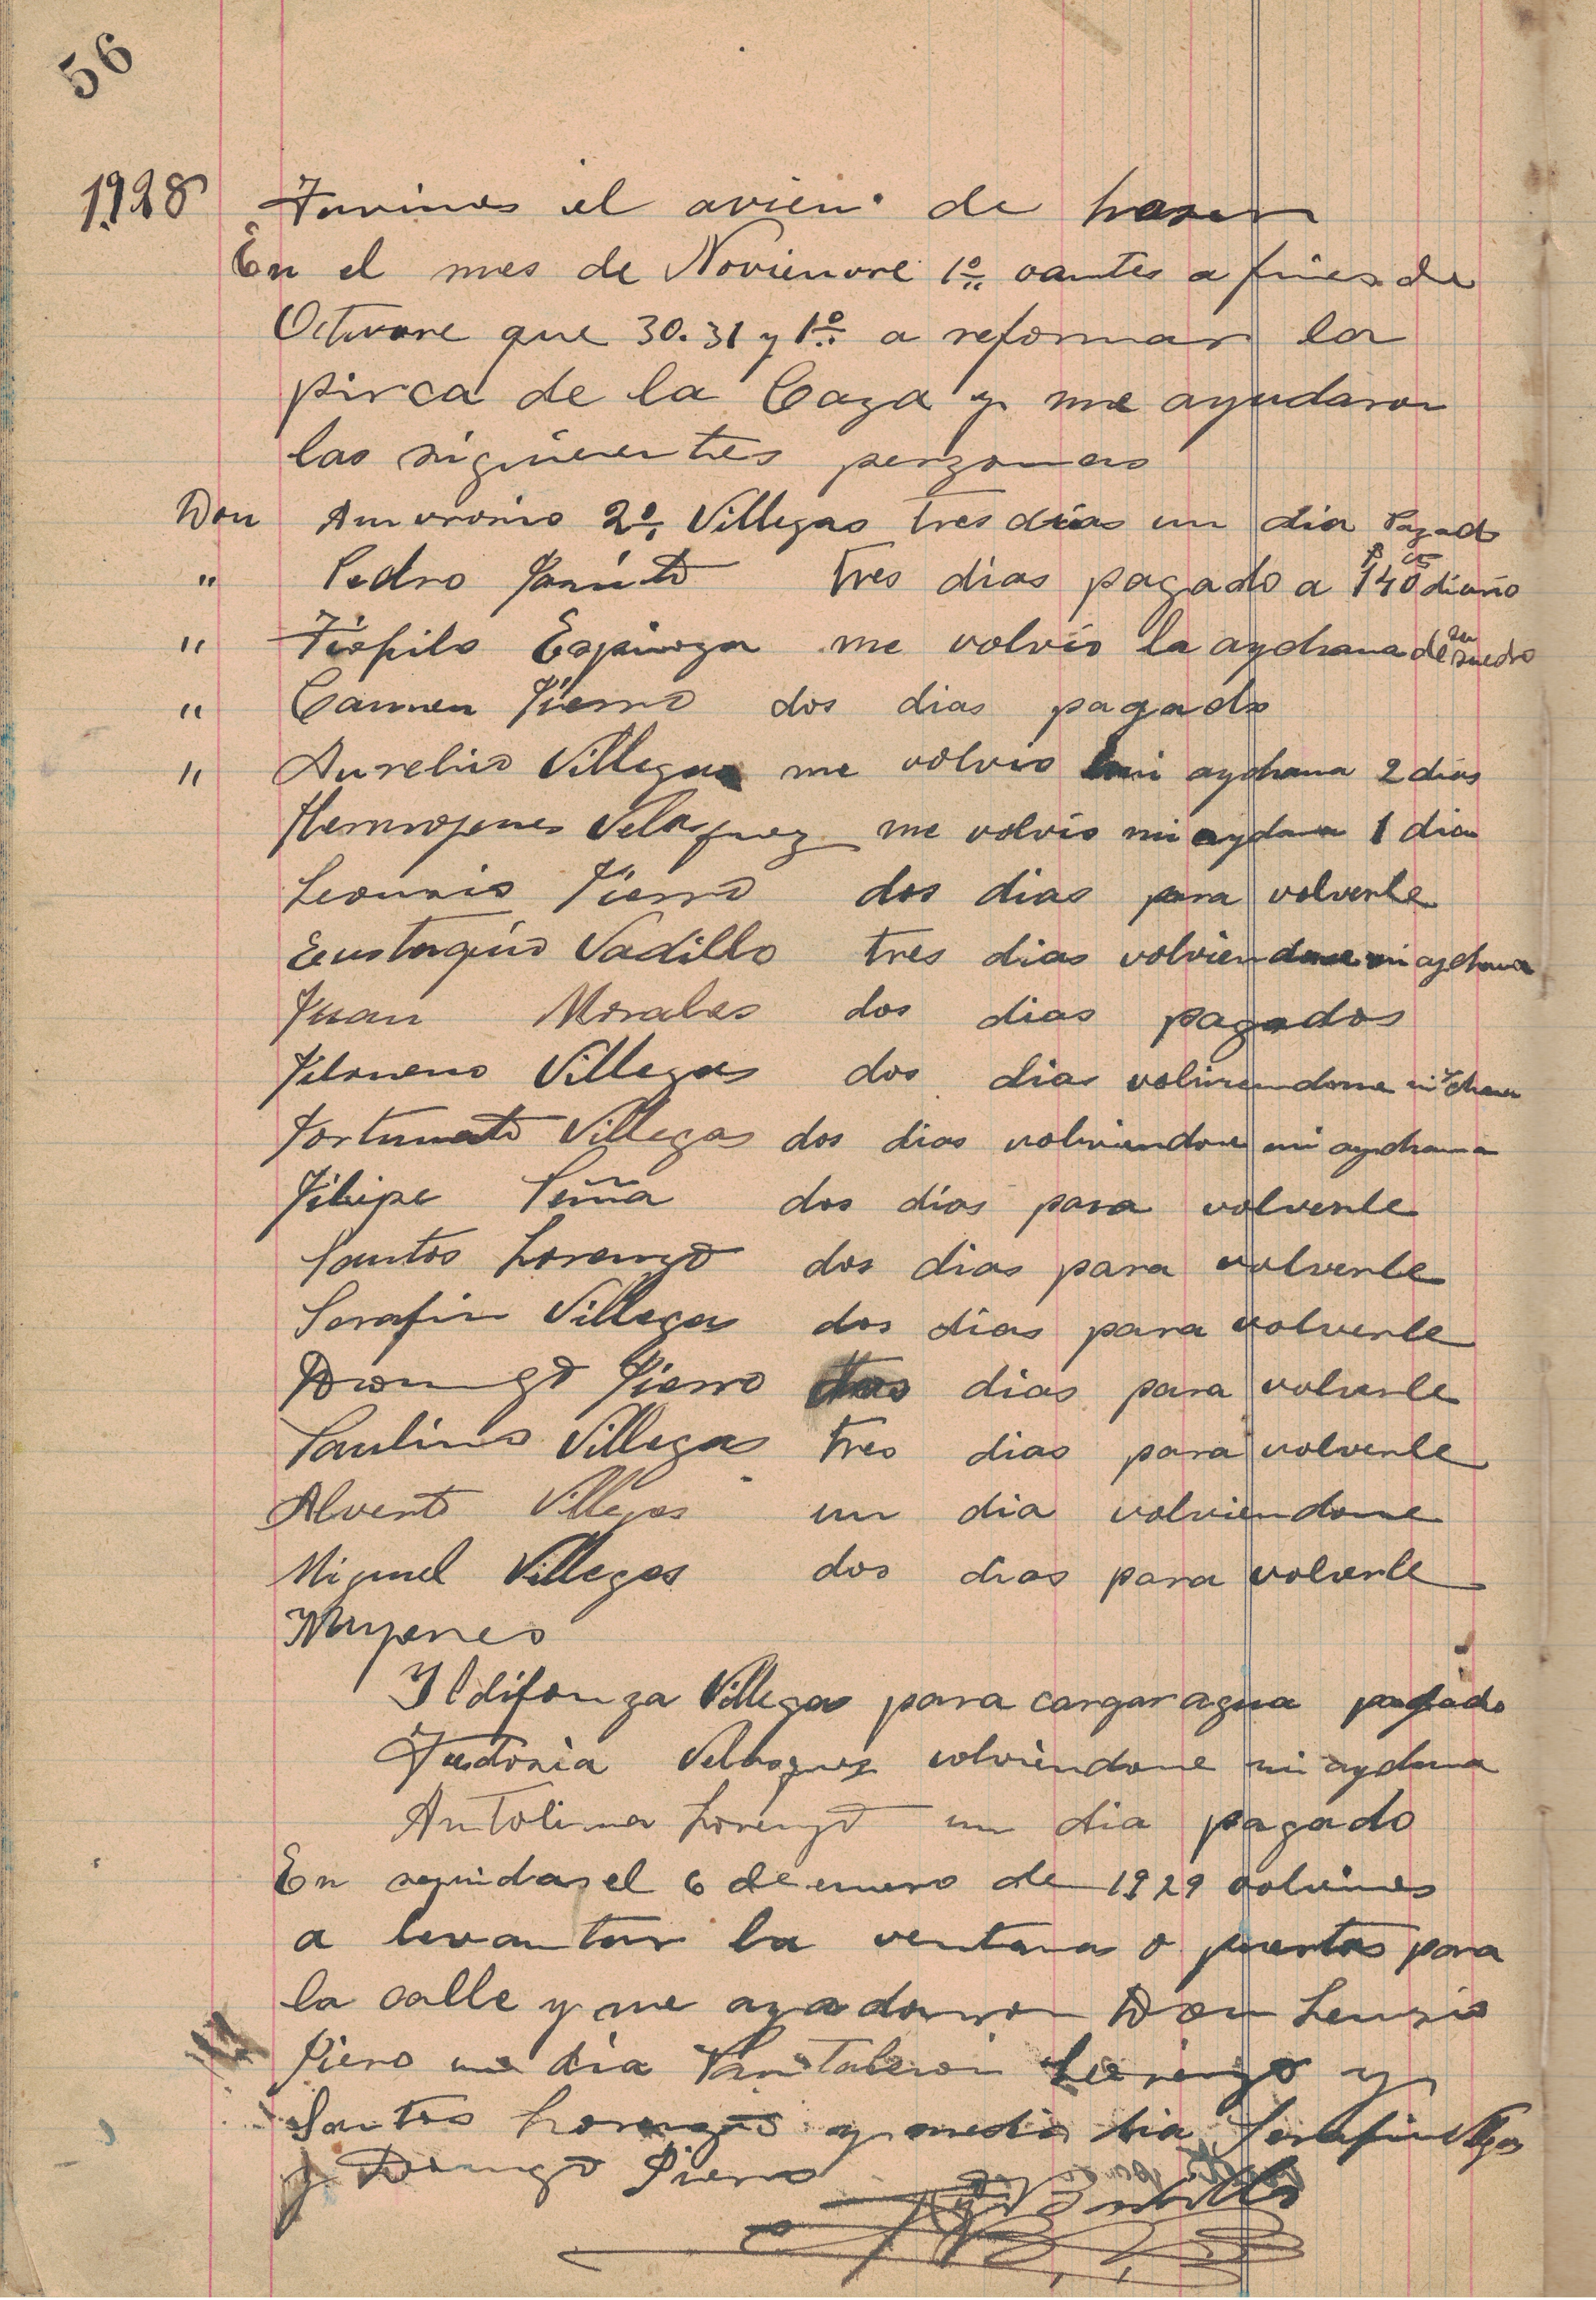 56
1928 Tuvimos el avieni de haser
En el mes de Novienvre 1º oantes a fines de
Octuvre que 30. 31 y 1º a reformar la
pirca de la Caza y me ayudaron
las siguienentes perzonas
Don Amvrosio 2º Villegas tres dias un dia Pagado
" Pedro tres dias pagado a $ 140 diario
" Tiofilo Espinoza me volvio la aydnana de su suedro
" Carmen Pierro dos dias pagado
" Aurelio Villegas me volvio mi aydnana 2 dias
Hermojenes Velasquez me volvio mi aydana 1 dia
Leoncio Pierro dos dias para volverle
Eustaquio Vadillo tres dias volviendome mi aydnana
Juan Morales dos dias pagados
Filomeno Villegas dos dias volviendome mi
Fortunato Villegas dos dias volviendome mi aydnana
Filipe Peña dos dias para volverle
Santos Lorenzo dos dias para volverle
Serafin Villegas dos dias para volverle
Domingo Pierro dias para volverle
Paulino Villegas tres dias para volverle
Alverto Villegas un dia volviendome
Miguel Villegas dos dias para volverle
Mujeres
Ildifonza Villegas para cargar agua pagado
Teudosia Velasquez volviendome mi aydana
Antolina Lorenzo un dia pagado
En seguidas el 6 de enero de 1929 volvimos
a levantar la ventana o puertas para
la calle y me ayadaron Don Leunsio
Piero un dia Pantaleon Lorenzo y
Santos Lorenzo y medio dia Serafin Villegas
y Domingo Pierro